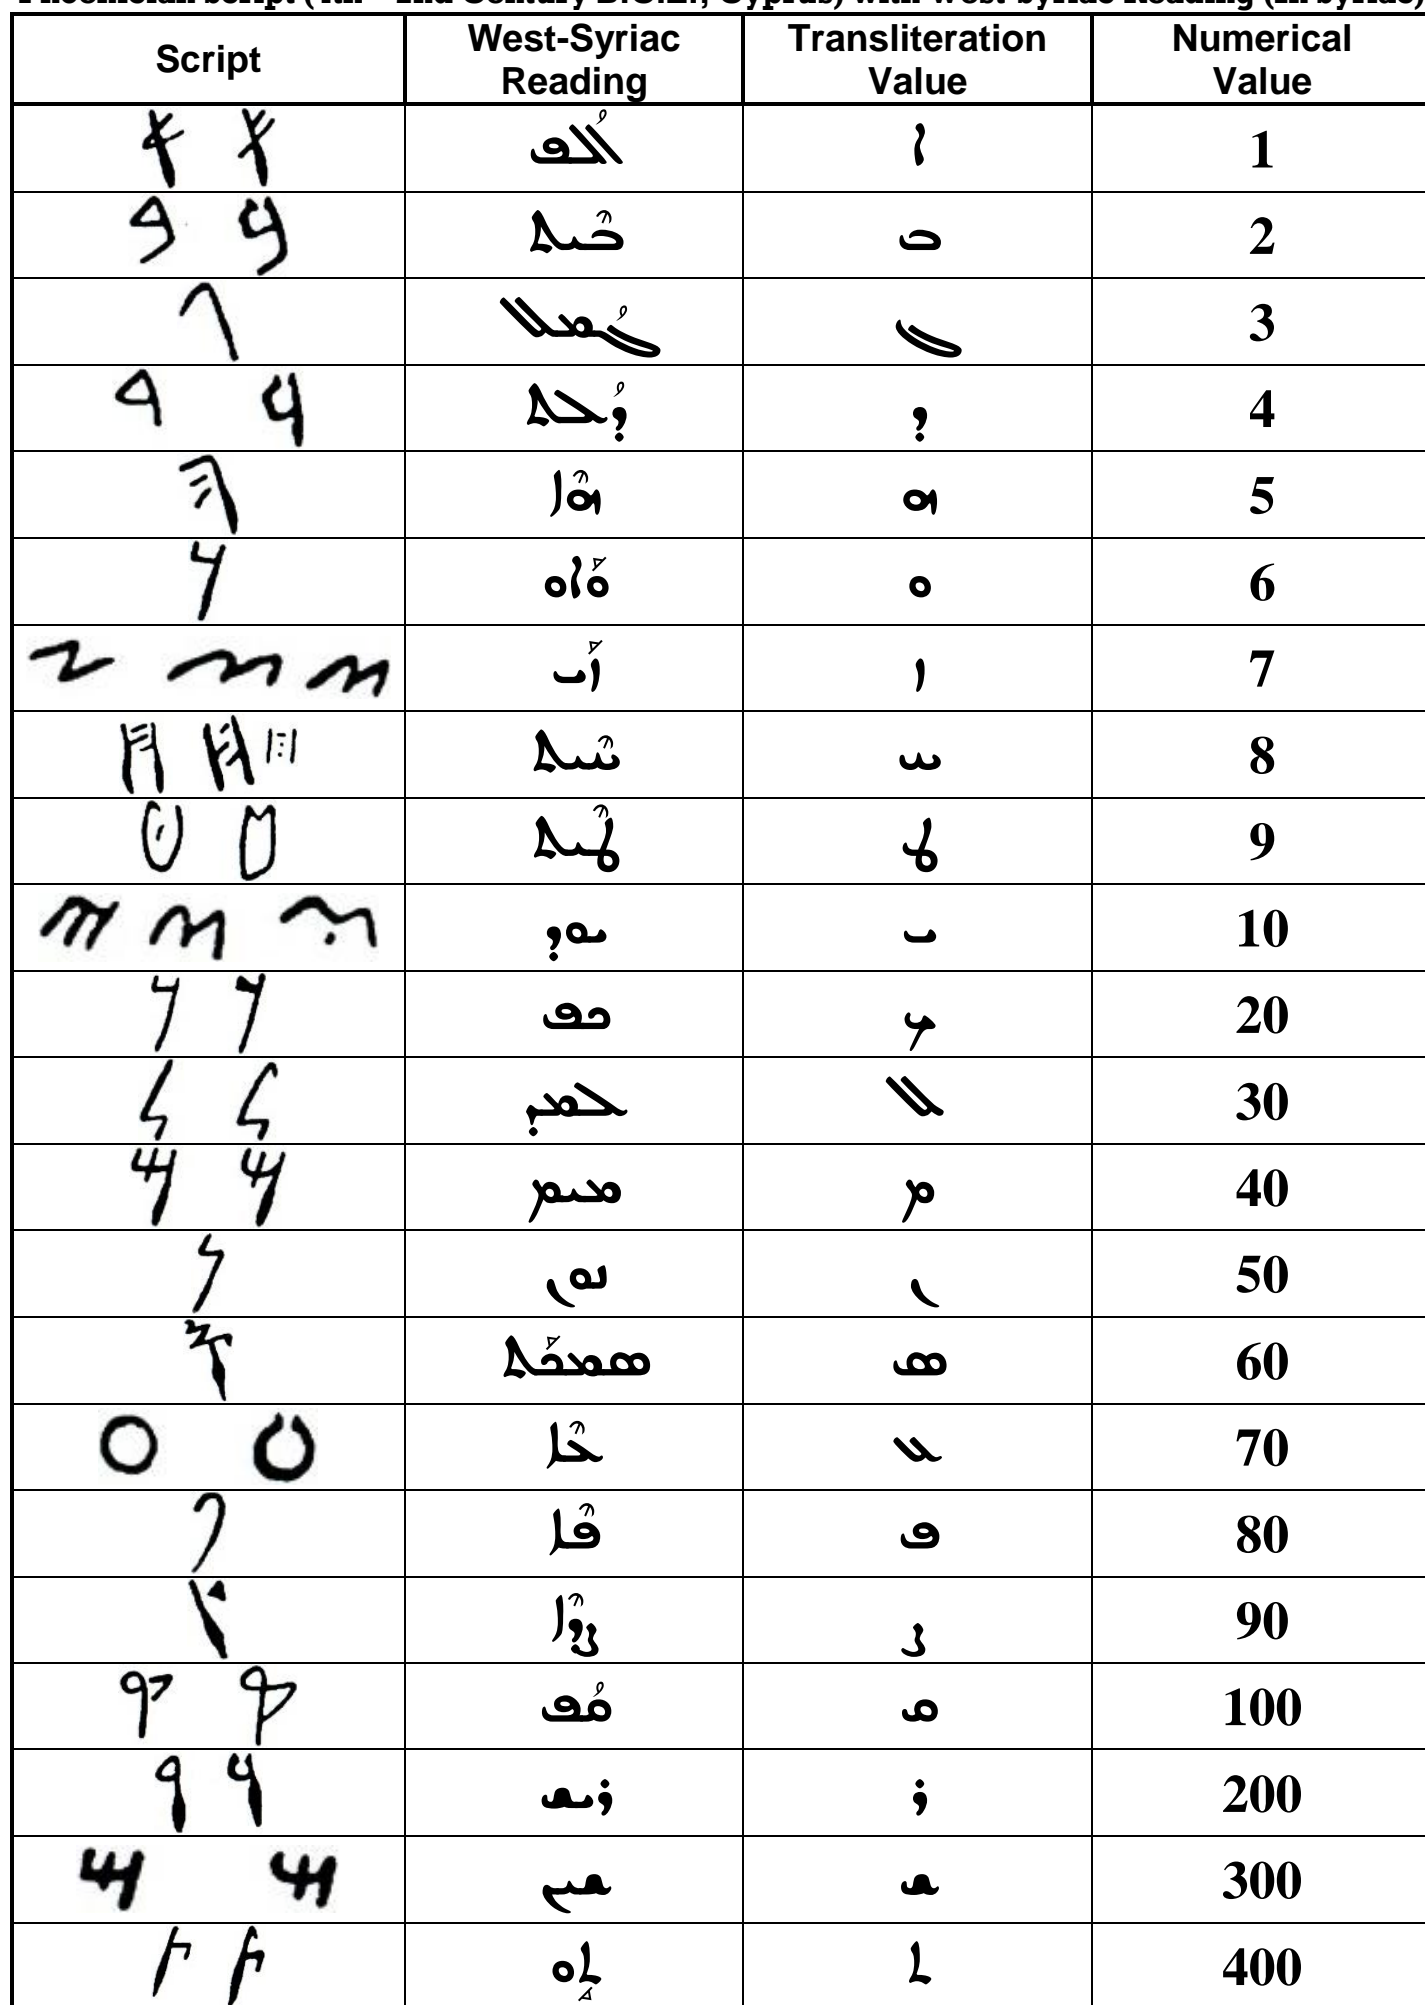 Phoenician Script (4th – 2nd Century B.C.E., Cyprus) with West-Syriac Reading (in Syriac)
Script West-Syriac Reading Transliteration Value Numerical Value
𐤀 𐤀 ܐܳܠܦ ܐ 1
𐤁 𐤁 ܒܶܝܬ ܒ 2
𐤂 ܓܳܡܠ ܓ 3
𐤃 𐤃 ܕܳܠܬ ܕ 4
𐤄 ܗܶܐ ܗ 5
𐤅 ܘܰܐܘ ܘ 6
𐤆 𐤆 𐤆 ܙܰܝ ܙ 7
𐤇 𐤇 𐤇 ܚܶܝܬ ܚ 8
𐤈 𐤈 ܛܶܝܬ ܛ 9
𐤉 𐤉 𐤉 ܝܘܕ ܝ 10
𐤊 𐤊 ܟܦ ܟ 20
𐤋 𐤋 ܠܡܕ ܠ 30
𐤌 𐤌 ܡܝܡ ܡ 40
𐤍 ܢܘܢ ܢ 50
𐤎 ܣܡܟܰܬ ܣ 60
𐤏 𐤏 ܥܶܐ ܥ 70
𐤐 ܦܶܐ ܦ 80
𐤑 ܨܕܶܐ ܨ 90
𐤒 𐤒 ܩܳܦ ܩ 100
𐤓 𐤓 ܪܝܫ ܪ 200
𐤔 𐤔 ܫܝܢ ܫ 300
𐤕 𐤕 ܬܱܘ ܬ 400